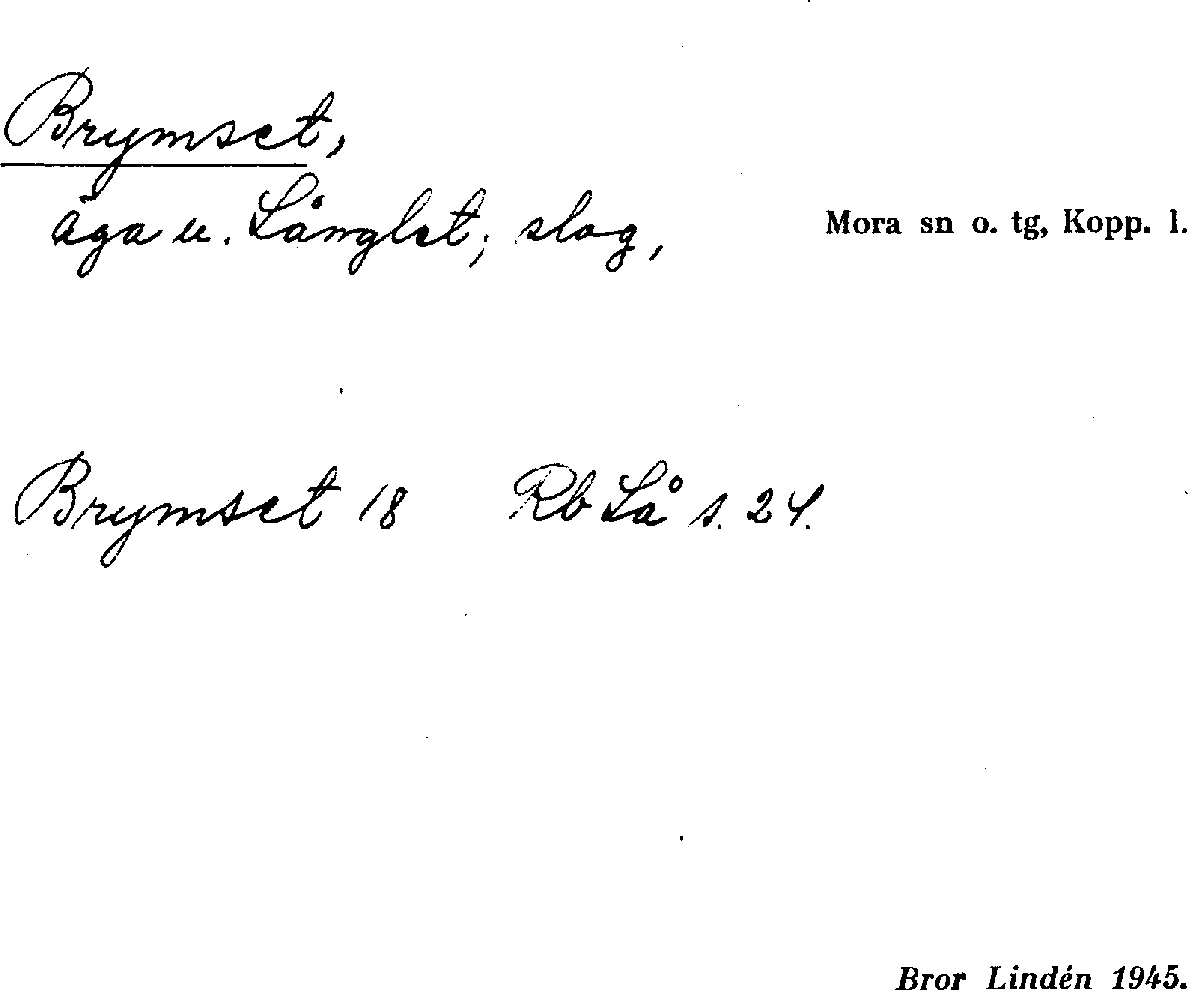 Brymset,
äga u. Långlet; slog, Mora sn o. tg, Kopp. l.
Brymset 18 Rb Lå s. 24.
Bror Lindén 1945.